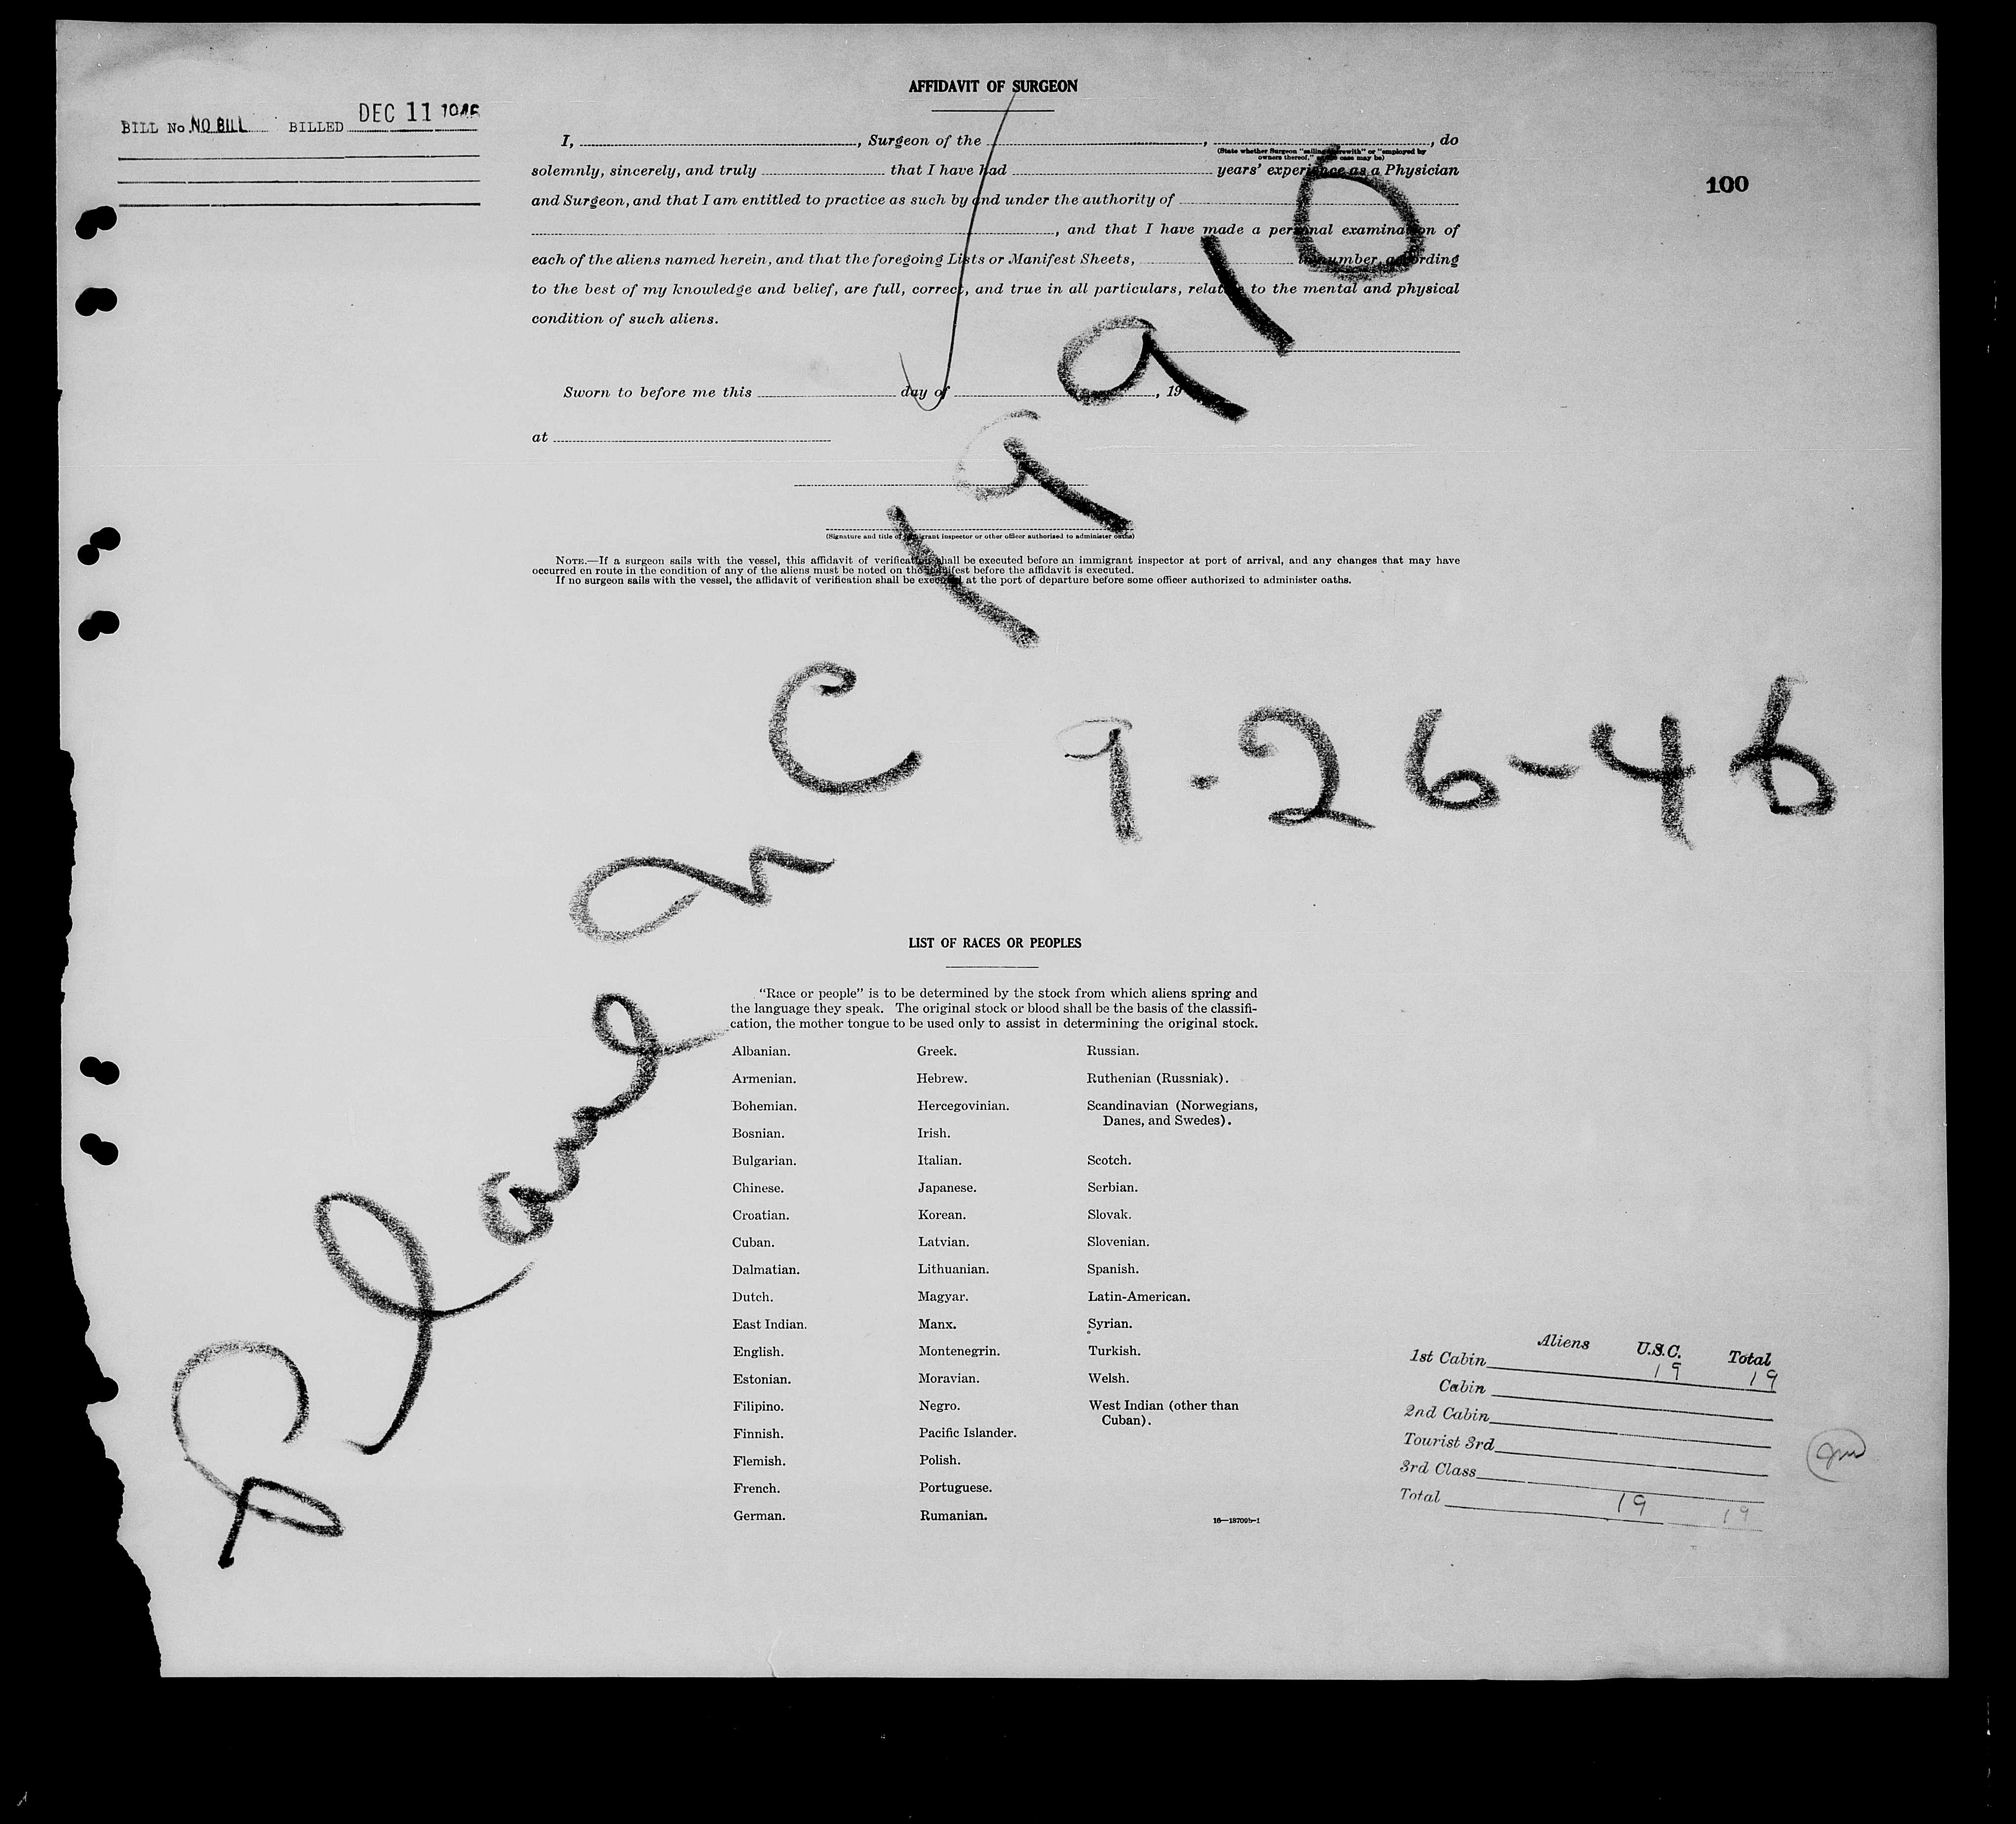 AFFIDAVIT OF SURGEON
BILL No. NO BILL BILLED DEC 11 1946
100
I, , Surgeon of the , , do
(State whether Surgeon "sailing therewith" or "employed by
owners thereof," as the case may be)
solemnly, sincerely, and truly that I have had years' experience as a Physician
and Surgeon, and that I am entitled to practice as such by and under the authority of
, and that I have made a personal examination of
each of the aliens named herein, and that the foregoing Lists or Manifest Sheets, in number, according
to the best of my knowledge and belief, are full, correct, and true in all particulars, relative to the mental and physical
condition of such aliens.
Sworn to before me this day of , 19
at
(Signature and title of immigrant inspector or other officer authorized to administer oaths)
NOTE.—If a surgeon sails with the vessel, this affidavit of verification shall be executed before an immigrant inspector at port of arrival, and any changes that may have
occurred en route in the condition of any of the aliens must be noted on the manifest before the affidavit is executed.
If no surgeon sails with the vessel, the affidavit of verification shall be executed at the port of departure before some officer authorized to administer oaths.
Plane NC 19910
9-26-46
LIST OF RACES OR PEOPLES
"Race or people" is to be determined by the stock from which aliens spring and
the language they speak. The original stock or blood shall be the basis of the classifi-
cation, the mother tongue to be used only to assist in determining the original stock.
Albanian. Greek. Russian.
Armenian. Hebrew. Ruthenian (Russniak).
Bohemian. Hercegovinian. Scandinavian (Norwegians,
Danes, and Swedes).
Bosnian. Irish.
Bulgarian. Italian. Scotch.
Chinese. Japanese. Serbian.
Croatian. Korean. Slovak.
Cuban. Latvian. Slovenian.
Dalmatian. Lithuanian. Spanish.
Dutch. Magyar. Latin-American.
East Indian. Manx. Syrian.
English. Montenegrin. Turkish.
Estonian. Moravian. Welsh.
Filipino. Negro. West Indian (other than
Cuban).
Finnish. Pacific Islander.
Flemish. Polish.
French. Portuguese.
German. Rumanian.
16—18709b-1
Aliens U.S.C. Total
1st Cabin 19 19
Cabin
2nd Cabin
Tourist 3rd
3rd Class
Total 19 19